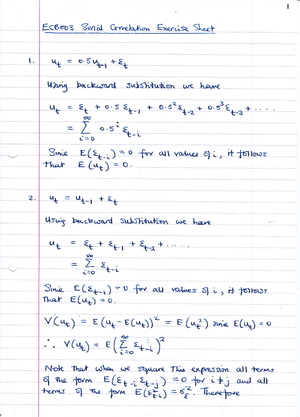 1
ECB003 Serial Correlation Exercise Sheet
1. u_t = 0.5u_{t-1} + ε_t
Using backward substitution we have
u_t = ε_t + 0.5 ε_{t-1} + 0.5² ε_{t-2} + 0.5³ ε_{t-3} + .....
= ∞ Σ i=0 0.5^i ε_{t-i}
Since E(ε_{t-i}) = 0 for all values of i, it follows
that E(u_t) = 0.
2. u_t = u_{t-1} + ε_t
Using backward substitution we have
u_t = ε_t + ε_{t-1} + ε_{t-2} + .....
= ∞ Σ i=0 ε_{t-i}
Since E(ε_{t-i}) = 0 for all values of i, it follows
that E(u_t) = 0.
V(u_t) = E(u_t - E(u_t))² = E(u_t²) since E(u_t) = 0
∴ V(u_t) = E(∞ Σ i=0 ε_{t-i})²
Note that when we square this expression all terms
of the form E(ε_{t-i} ε_{t-j}) = 0 for i≠j and all
terms of the form E(ε²_{t-i}) = σ²_ε. Therefore